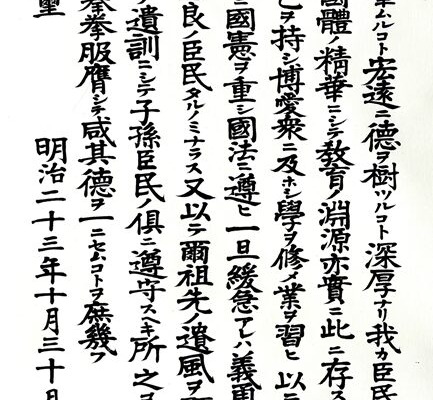 ムルコト宏遠ニ德ヲ樹ツルコト深厚ナリ我カ臣民
國體ノ精華ニシテ教育ノ淵源亦實ニ此ニ存ス
ヲ持シ博愛衆ニ及ホシ學ヲ修メ業ヲ習ヒ以テ
ニ國憲ヲ重シ國法ニ遵ヒ一旦緩急アレハ義勇
良ノ臣民タルノミナラス又以テ爾祖先ノ遺風ヲ
ノ遺訓ニシテ子孫臣民ノ俱ニ遵守スヘキ所之ヲ
拳拳服膺シテ咸其德ヲ一ニセムコトヲ庶幾フ
明治二十三年十月三十日